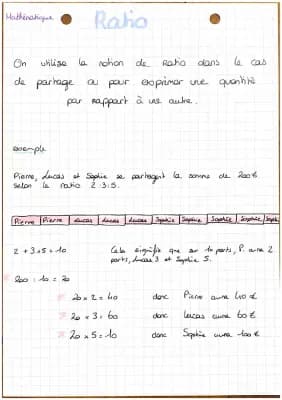 Mathématique
Ratio
On utilise la notion de Ratio dans le cas
de partage ou pour exprimer une quantité
par rapport à une autre.
exemple
Pierre, Lucas et Sophie se partagent la somme de 200€
selon le ratio 2:3:5.
Pierre Pierre Lucas Lucas Lucas Sophie Sophie Sophie Sophie Soph
2 + 3 + 5 = 10
Cela signifie que sur 10 parts, P. aura 2
parts, Lucas 3 et Sophie 5.
200 : 10 = 20
20 x 2 = 40 donc Pierre aura 40 €
20 x 3 = 60 donc Lucas aura 60 €
20 x 5 = 10 donc Sophie aura 100 €